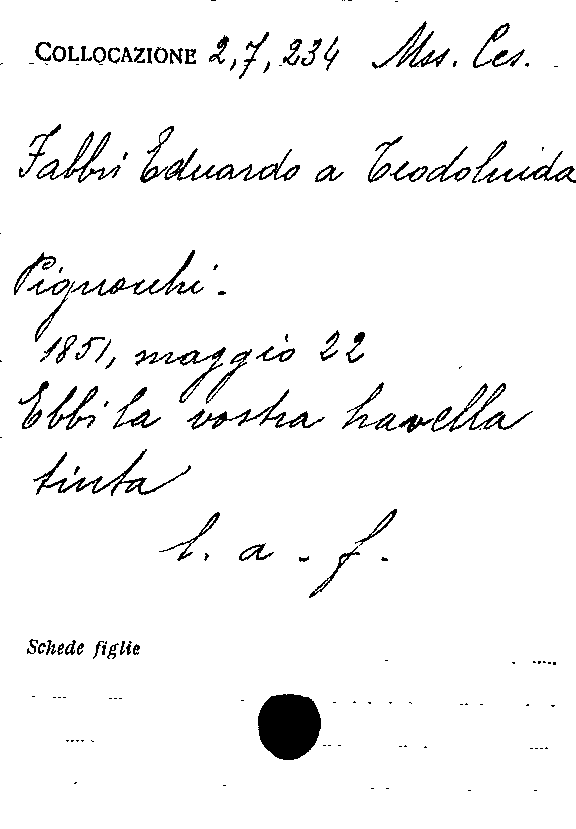 COLLOCAZIONE 2,7,234 Mss. Ces.
Fabbri Eduardo a Teodolinda
Pignocchi.
1851, maggio 22
Ebbi la vostra
tinta
l. a. f.
Schede figlie